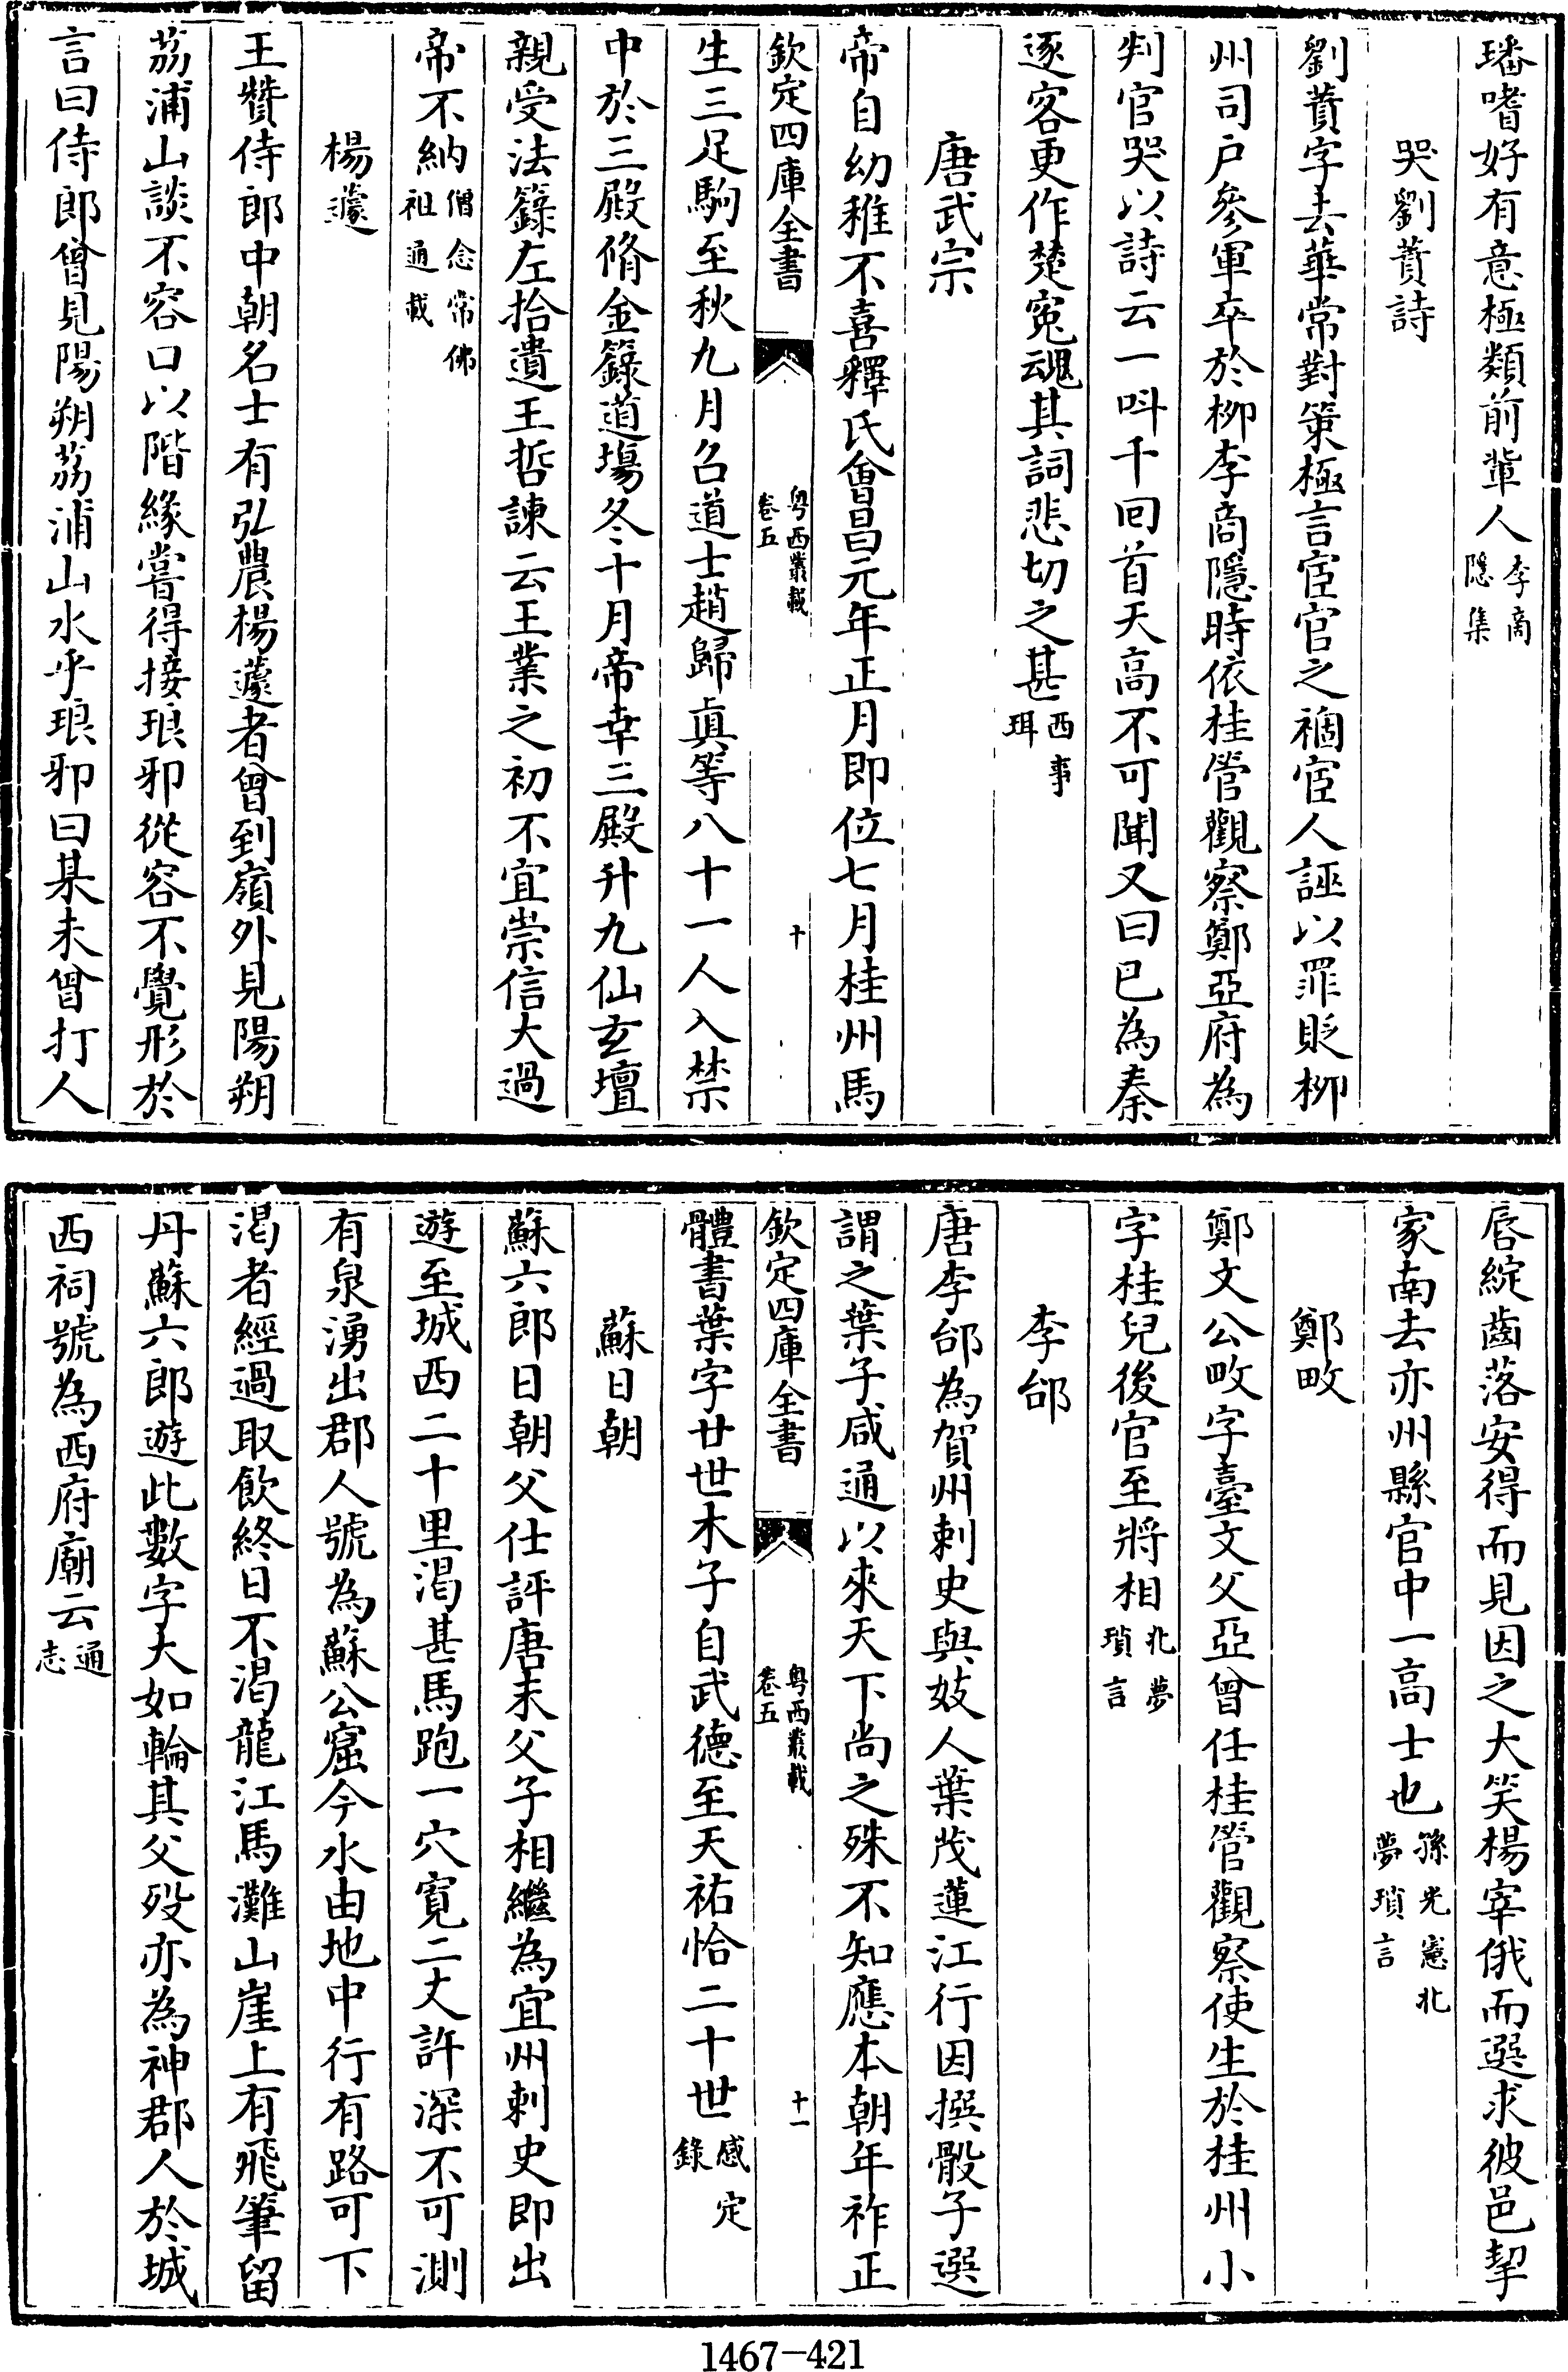 璠嗜好有意極類前輩人李商隱集
哭劉蕡詩
劉蕡字去華常對策極言宦官之禍宦人誣以罪貶柳
州司戶參軍卒於柳李商隱時依桂管觀察鄭亞府為
判官哭以詩云一呌千回首天高不可聞又曰已為秦
逐客更作楚寃魂其詞悲切之甚西事珥
唐武宗
帝自幼稚不喜釋氏會昌元年正月即位七月桂州馬
欽定四庫全書
粤西叢載
卷五
十
生三足駒至秋九月召道士趙歸真等八十一人入禁
中於三殿脩金籙道塲冬十月帝幸三殿升九仙玄壇
親受法籙左拾遺王哲諫云王業之初不宜崇信大過
帝不納僧念常佛祖通載
楊蘧
王贊侍郎中朝名士有弘農楊蘧者曾到嶺外見陽朔
荔浦山談不容口以階緣嘗得接琅邪從容不覺形於
言曰侍郎曾見陽朔荔浦山水乎琅邪曰某未曾打人
唇綻齒落安得而見因之大笑楊宰俄而選求彼邑挈
家南去亦州縣官中一高士也孫光憲北夢瑣言
鄭畋
鄭文公畋字臺文父亞曾任桂管觀察使生於桂州小
字桂兒後官至將相北夢瑣言
李郃
唐李郃為賀州刺史與妓人葉茂蓮江行因撰骰子選
謂之葉子咸通以來天下尚之殊不知應本朝年祚正
欽定四庫全書
粤西叢載
卷五
十一
體書葉字廿世木子自武德至天祐恰二十世感定錄
蘇日朝
蘇六郎日朝父仕評唐末父子相繼為宜州刺史即出
遊至城西二十里渴甚馬跑一穴寛二丈許深不可測
有泉湧出郡人號為蘇公窟今水由地中行有路可下
渴者經過取飲終日不渴龍江馬灘山崖上有飛筆留
丹蘇六郎遊此數字大如輪其父歿亦為神郡人於城
西祠號為西府廟云通志
1467-421